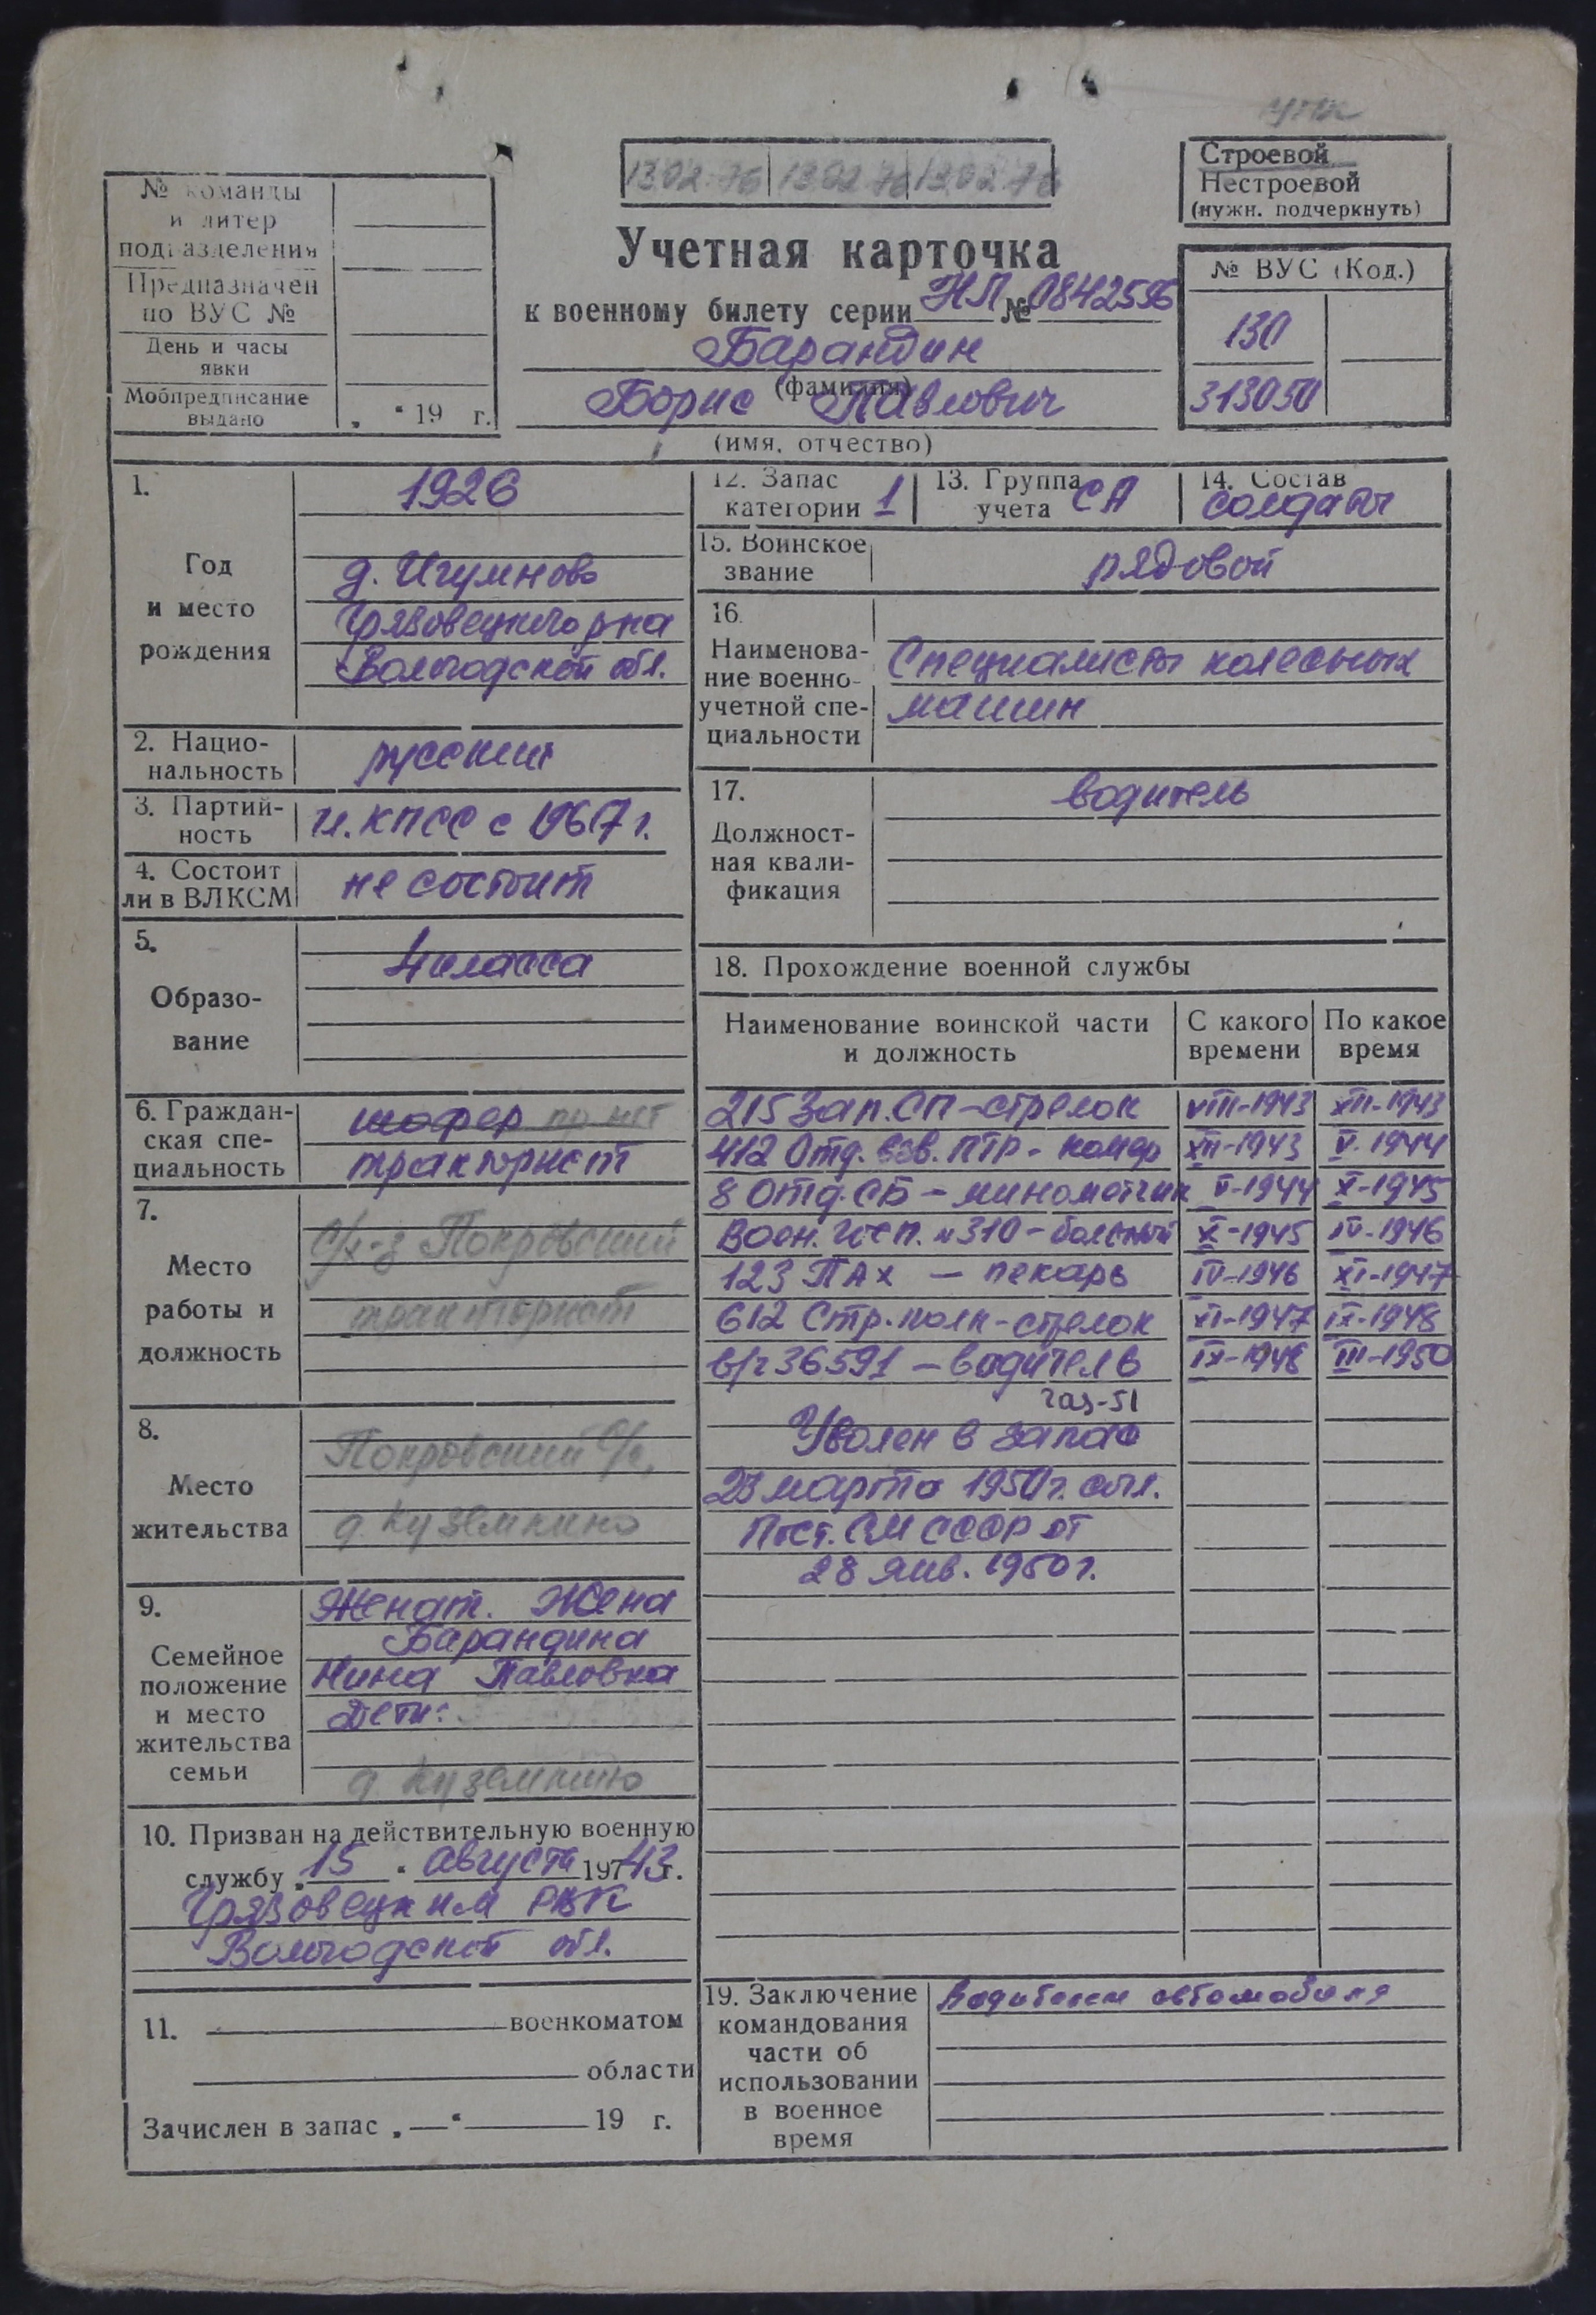 Строевой
Нестроевой
(нужн. подчеркнуть)
13.02.76 13.02.76 13.02.76
№ команды
и литер
подразделения
Предназначен
по ВУС №
День и часы
явки
Мобпредписание
выдано
„ “ 19 г.
Учетная карточка
к военному билету серии НЛ № 0842556
Барандин
(фамилия)
Борис Павлович
(имя, отчество)
№ ВУС (Код.)
130
313050
1.
Год
и место
рождения
1926
д. Игумново
Грязовецкого р-на
Вологодской обл.
2. Нацио-
нальность
русский
3. Партий-
ность
чл. КПСС с 1967 г.
4. Состоит
ли в ВЛКСМ
не состоит
5.
Образо-
вание
4 класса
6. Граждан-
ская спе-
циальность
шофер
тракторист
7.
Место
работы и
должность
С/х-з Покровский
тракторист
8.
Место
жительства
Покровский С/с,
д. Куземкино
9.
Семейное
положение
и место
жительства
семьи
Женат. Жена
Барандина
Нина Павловна
Дети:
д Куземкино
10. Призван на действительную военную
службу „ 15 “ августа 197 43 г.
Грязовецким РВК
Вологодской обл.
11. военкоматом
области
Зачислен в запас „ — “ 19 г.
12. Запас
категории 1
13. Группа
учета СА
14. Состав
солдаты
15. Воинское
звание
рядовой
16.
Наименова-
ние военно-
учетной спе-
циальности
Специалисты колесных
машин
17.
Должност-
ная квали-
фикация
водитель
18. Прохождение военной службы
Наименование воинской части
и должность
С какого
времени
По какое
время
215 Зап. СП – стрелок VIII-1943 XII-1943
412 Отд. взв. ПТР - номер XII-1943 V-1944
8 Отд. СБ – минометчик V-1944 X-1945
Воен. Госп. №310 – больной X-1945 IV-1946
123 ПАХ – пекарь IV-1946 XI-1947
612 Стр. полк - стрелок XI-1947 IX-1948
в/ч 36591 – водитель IX-1948 III-1950
газ-51
Уволен в запас
23 марта 1950 г. согл.
Пост. СМ СССР от
28 янв. 1950 г.
19. Заключение
командования
части об
использовании
в военное
время
Водителем автомобиля